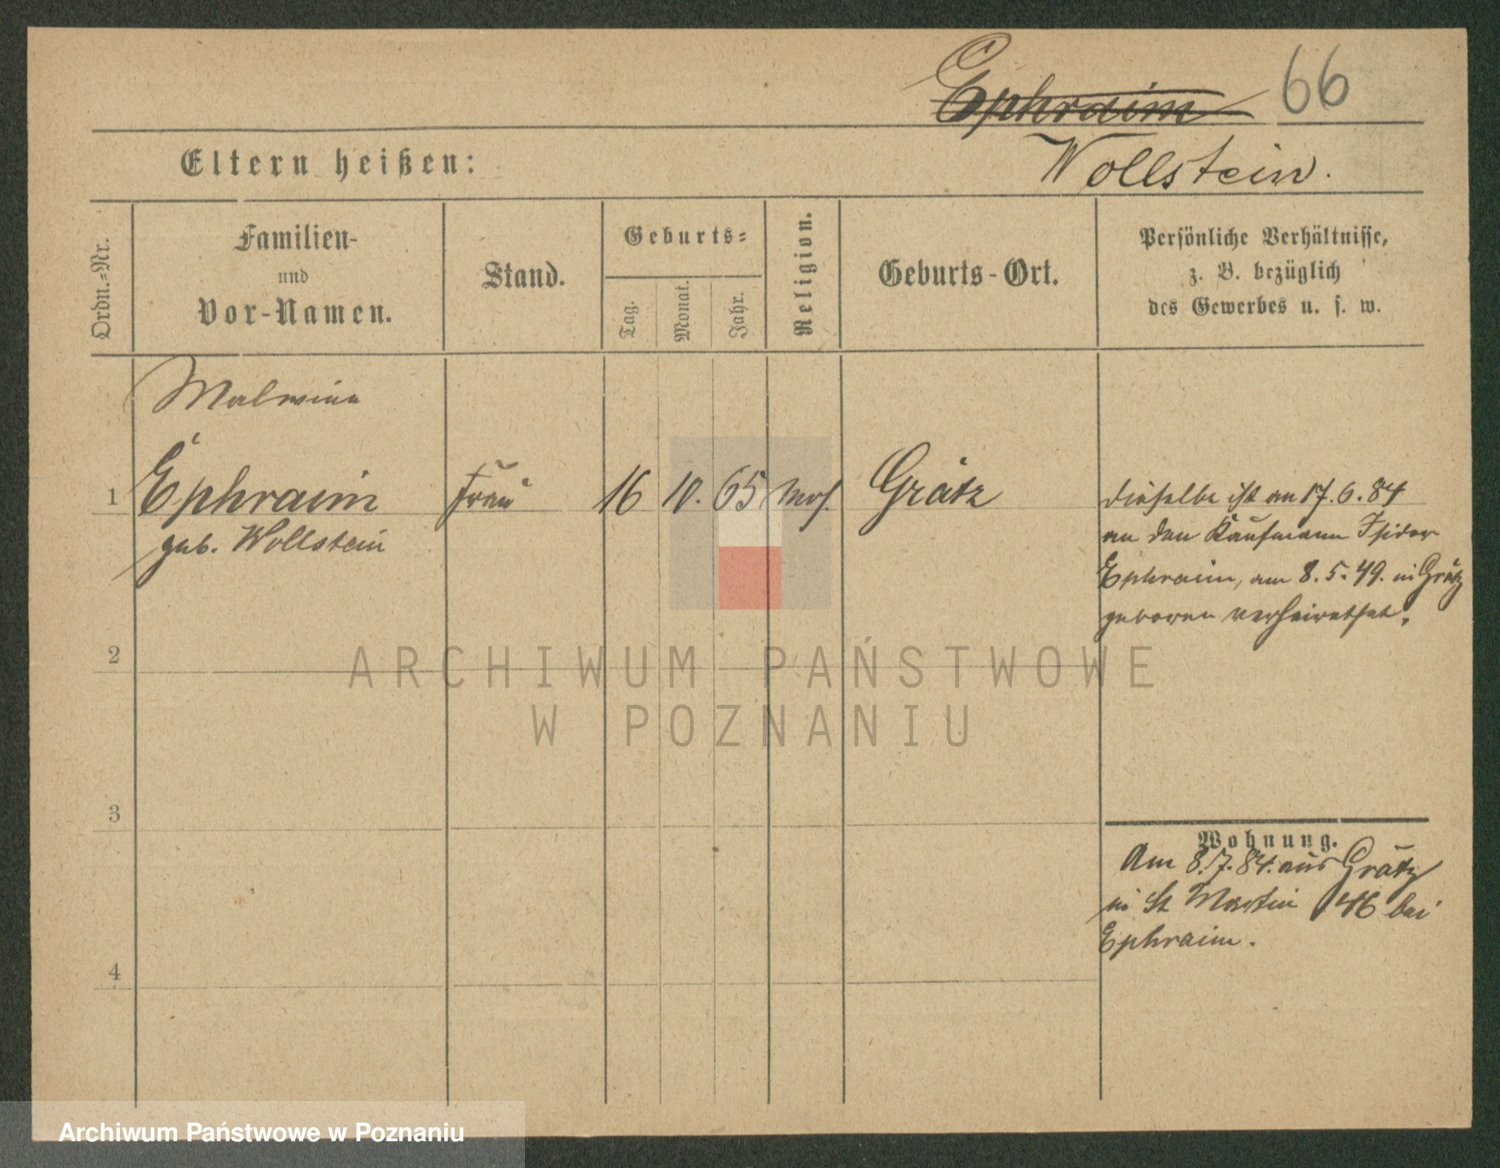 Ephraim 66
Wollstein.
Eltern heißen:
Ordn.-Nr.
Familien-
und
Vor-Namen.
Stand.
Geburts-
Tag.
Monat.
Jahr.
Religion.
Geburts-Ort.
Persönliche Verhältnisse,
z. B. bezüglich
des Gewerbes u. s. w.
Malwina
1 Ephraim Frau 16 10. 65 mos. Grätz
geb. Wollstein
dieselbe ist am 17.6.84
an den Kaufmann Isidor
Ephraim, am 8.5.49. in Grätz
geboren verheirathet.
2
3
4
Wohnung.
Am 8.7.84. aus Grätz
in St Martin 46 bei
Ephraim.
ARCHIWUM PAŃSTWOWE
W POZNANIU
Archiwum Państwowe w Poznaniu